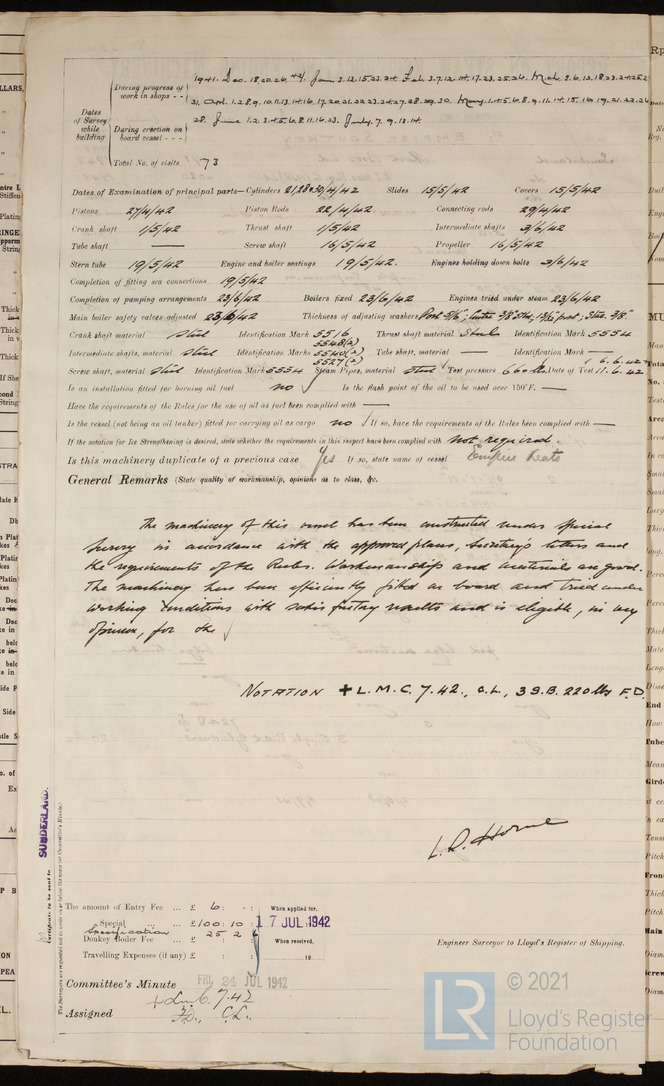 During progress of work in shops - -
1941. Dec. 18.20.26. '42. Jan 3.12.15.23.24 Feb 3.7.12.14.17.23.25.26. Mch
31, Apl. 1.2.8.9.10.11.13.14.16.17.20.21.22.23.24.27.28.29.30. May. 1.4.5.6.8.9.11.14.15.16.19.21.22.26
Dates of Survey while building
During erection on board vessel - - -
28. June 1.2.3.4.5.6.8.11.16.23. July. 7.9.13.14.
Total No. of visits 73
Dates of Examination of principal parts—Cylinders 21,28 & 30/4/42 Slides 15/5/42 Covers 15/5/42
Pistons 27/4/42 Piston Rods 22/4/42 Connecting rods 29/4/42
Crank shaft 1/5/42 Thrust shaft 1/5/42 Intermediate shafts 3/6/42
Tube shaft — Screw shaft 16/5/42 Propeller 16/5/42
Stern tube 19/5/42 Engine and boiler seatings 19/5/42. Engines holding down bolts 3/6/42
Completion of fitting sea connections 19/5/42
Completion of pumping arrangements 23/6/42 Boilers fixed 23/6/42 Engines tried under steam 23/6/42
Main boiler safety valves adjusted 23/6/42 Thickness of adjusting washers
Crank shaft material Steel Identification Mark 5516 Thrust shaft material Steel Identification Mark 5554
5548(2)
Intermediate shafts, material Steel Identification Marks 5540(2) Tube shaft, material — Identification Mark —
5527(2)
Screw shaft, material Steel Identification Mark 5554 Steam Pipes, material Steel Test pressure 660 lbs Date of Test 11.6.42
Is an installation fitted for burning oil fuel no Is the flash point of the oil to be used over 150°F. —
Have the requirements of the Rules for the use of oil as fuel been complied with —
Is the vessel (not being an oil tanker) fitted for carrying oil as cargo no If so, have the requirements of the Rules been complied with —
If the notation for Ice Strengthening is desired, state whether the requirements in this respect have been complied with not required.
Is this machinery duplicate of a previous case Yes If so, state name of vessel Empire Keats
General Remarks (State quality of workmanship, opinions as to class, &c.
The machinery of this vessel has been constructed under special
survey in accordance with the approved plans, Secretary's letters and
the requirements of the Rules. Workmanship and materials are good.
The machinery has been efficiently fitted on board and tried under
working conditions with satisfactory results and is eligible, in my
opinion, for the
NOTATION + L.M.C. 7.42., C.L., 3 S.B. 220 lbs F.D.
L. D. Horne
SUNDERLAND.
Certificate to be sent to
The amount of Entry Fee ... £ 6 : : When applied for,
Special ... ... £ 100 : 10 : 17 JUL 1942
Specification
Donkey Boiler Fee ... £ 25 2 6 When received,
Travelling Expenses (if any) £ : : 19
Engineer Surveyor to Lloyd's Register of Shipping.
Committee's Minute FRI 24 JUL 1942
+ Lmc 7.42
Assigned F.D., C.L.
LR
© 2021
Lloyd's Register
Foundation